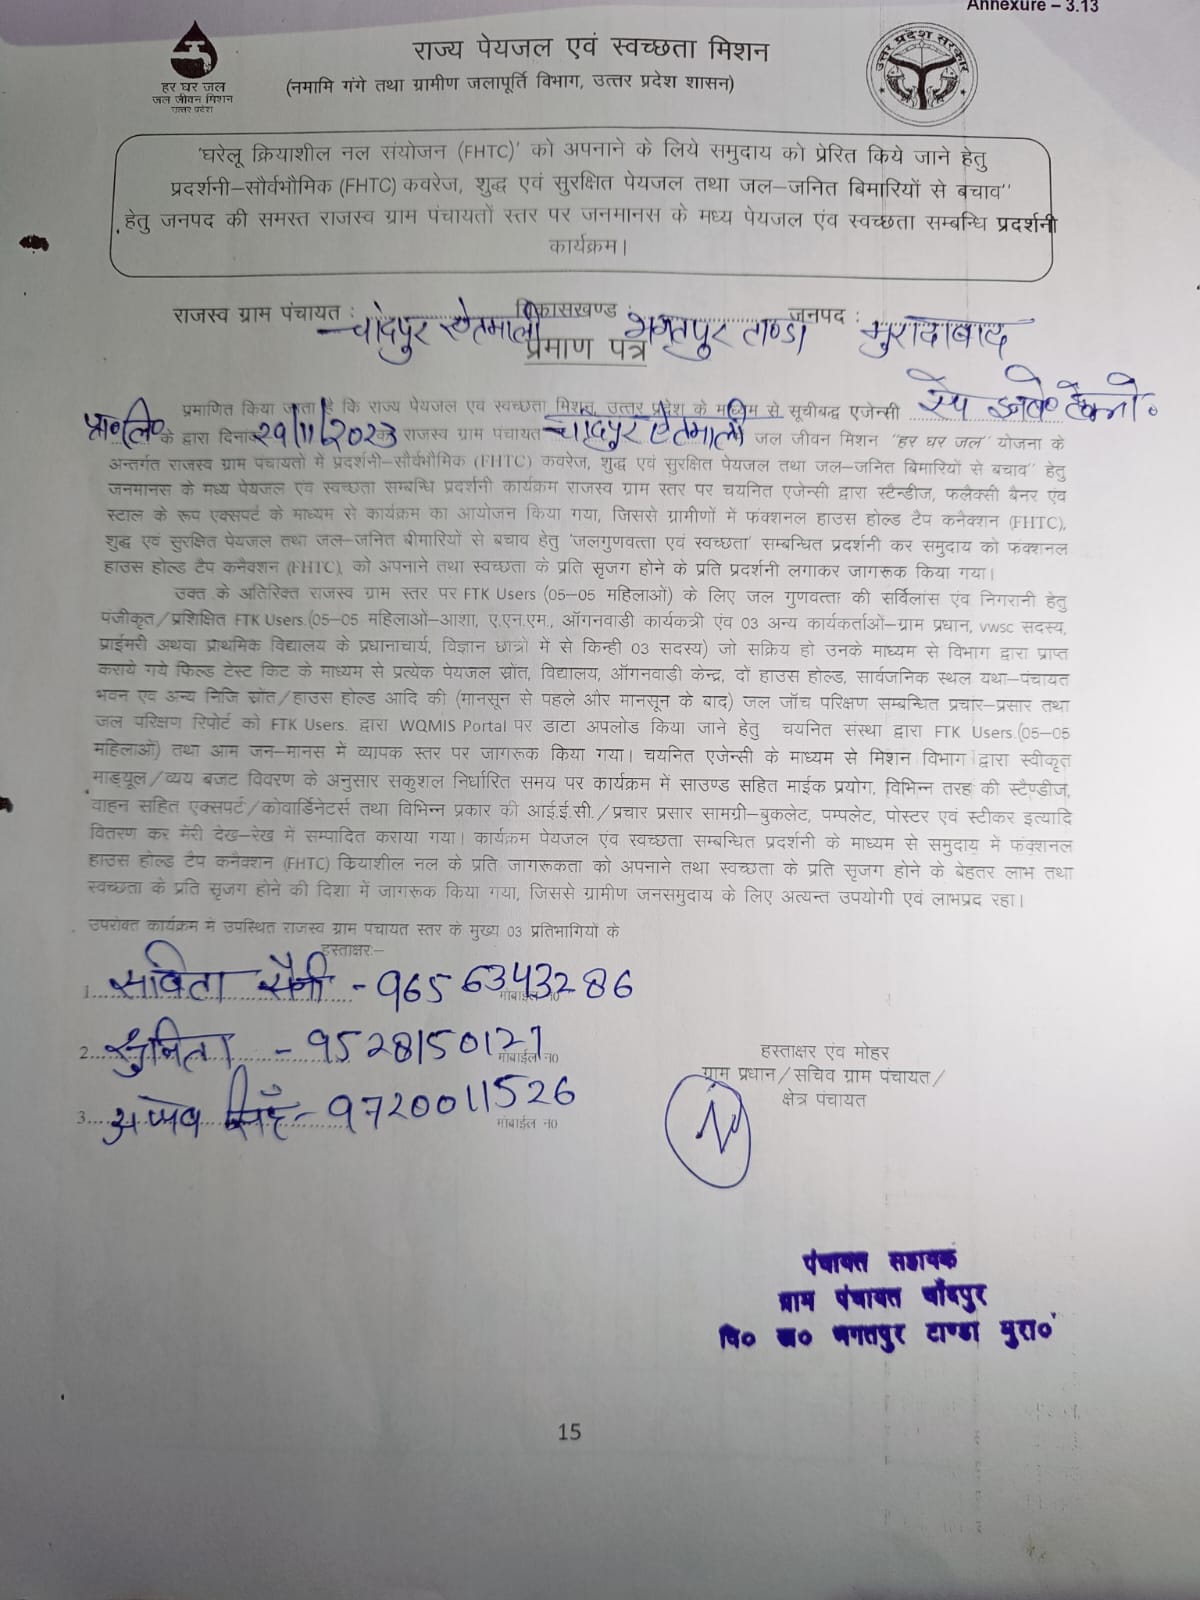 Annexure – 3.13
हर घर जल
जल जीवन मिशन
उत्तर प्रदेश
राज्य पेयजल एवं स्वच्छता मिशन
(नमामि गंगे तथा ग्रामीण जलापूर्ति विभाग, उत्तर प्रदेश शासन)
उत्तर प्रदेश सरकार
'घरेलू क्रियाशील नल संयोजन (FHTC)' को अपनाने के लिये समुदाय को प्रेरित किये जाने हेतु
प्रदर्शनी–सौर्वभौमिक (FHTC) कवरेज, शुद्ध एवं सुरक्षित पेयजल तथा जल–जनित बिमारियों से बचाव"
हेतु जनपद की समस्त राजस्व ग्राम पंचायतों स्तर पर जनमानस के मध्य पेयजल एंव स्वच्छता सम्बन्धि प्रदर्शनी
कार्यक्रम।
राजस्व ग्राम पंचायत : चांदपुर विकासखण्ड : भगतपुर टाण्डा जनपद : मुरादाबाद
प्रमाण पत्र
प्रमाणित किया जाता है कि राज्य पेयजल एवं स्वच्छता मिशन, उत्तर प्रदेश के माध्यिम से सूचीबद्व एजेन्सी
प्रा०लि० के द्वारा दिनांक 29/11/2023 को राजस्व ग्राम पंचायत चांदपुर जल जीवन मिशन "हर घर जल" योजना के
अन्तर्गत राजस्व ग्राम पंचायतों में प्रदर्शनी–सौर्वभौमिक (FHTC) कवरेज, शुद्ध एवं सुरक्षित पेयजल तथा जल–जनित बिमारियों से बचाव" हेतु
जनमानस के मध्य पेयजल एंव स्वच्छता सम्बन्धि प्रदर्शनी कार्यक्रम राजस्व ग्राम स्तर पर चयनित एजेन्सी द्वारा स्टैन्डीज, फलैक्सी बैनर एंव
स्टाल के रूप एक्सपर्ट के माध्यम से कार्यक्रम का आयोजन किया गया, जिससे ग्रामीणों में फंक्शनल हाउस होल्ड टैप कनैक्शन (FHTC),
शुद्ध एवं सुरक्षित पेयजल तथा जल–जनित बीमारियों से बचाव हेतु 'जलगुणवत्ता एवं स्वच्छता' सम्बन्धित प्रदर्शनी कर समुदाय को फंक्शनल
हाउस होल्ड टैप कनैक्शन (FHTC), को अपनाने तथा स्वच्छता के प्रति सृजग होने के प्रति प्रदर्शनी लगाकर जागरूक किया गया।
उक्त के अतिरिक्त राजस्व ग्राम स्तर पर FTK Users (05–05 महिलाओं) के लिए जल गुणवत्ता की सर्विलांस एंव निगरानी हेतु
पंजीकृत/प्रशिक्षित FTK Users.(05–05 महिलाओं–आशा, ए.एन.एम., ऑगनवाड़ी कार्यकत्री एंव 03 अन्य कार्यकर्ताओं–ग्राम प्रधान, vwsc सदस्य,
प्राईमरी अथवा प्राथमिक विद्यालय के प्रधानाचार्य, विज्ञान छात्रों में से किन्ही 03 सदस्य) जो सक्रिय हो उनके माध्यम से विभाग द्वारा प्राप्त
कराये गये फिल्ड टेस्ट किट के माध्यम से प्रत्येक पेयजल स्रोत, विद्यालय, ऑगनवाडी केन्द्र, दों हाउस होल्ड, सार्वजनिक स्थल यथा–पंचायत
भवन एव अन्य निजि स्रोत/हाउस होल्ड आदि की (मानसून से पहले और मानसून के बाद) जल जॉच परिक्षण सम्बन्धित प्रचार–प्रसार तथा
जल परिक्षण रिपोर्ट को FTK Users. द्वारा WQMIS Portal पर डाटा अपलोड किया जाने हेतु चयनित संस्था द्वारा FTK Users.(05–05
महिलाओं) तथा आम जन–मानस में व्यापक स्तर पर जागरूक किया गया। चयनित एजेन्सी के माध्यम से मिशन विभाग द्वारा स्वीकृत
माड्यूल/व्यय बजट विवरण के अनुसार सकुशल निर्धारित समय पर कार्यक्रम में साउण्ड सहित माईक प्रयोग, विभिन्न तरह की स्टैण्डीज,
वाहन सहित एक्सपर्ट/कोवार्डिनेटर्स तथा विभिन्न प्रकार की आई.ई.सी./प्रचार प्रसार सामग्री–बुकलेट, पम्पलेट, पोस्टर एवं स्टीकर इत्यादि
वितरण कर मेरी देख–रेख में सम्पादित कराया गया। कार्यक्रम पेयजल एंव स्वच्छता सम्बन्धित प्रदर्शनी के माध्यम से समुदाय में फंक्शनल
हाउस होल्ड टैप कनैक्शन (FHTC) कियाशील नल के प्रति जागरूकता को अपनाने तथा स्वच्छता के प्रति सृजग होने के बेहतर लाभ तथा
स्वच्छता के प्रति सृजग होने की दिशा में जागरूक किया गया, जिससे ग्रामीण जनसमुदाय के लिए अत्यन्त उपयोगी एवं लाभप्रद रहा।
उपरोक्त कार्यक्रम में उपस्थित राजस्व ग्राम पंचायत स्तर के मुख्य 03 प्रतिभागियों के
हस्ताक्षर:–
1. सविता सैनी - 9656343286 मोबाईल न0
2. सुनिता - 9528150127 मोबाईल न0
3. अजब सिंह - 9720011526 मोबाईल न0
हस्ताक्षर एंव मोहर
ग्राम प्रधान/सचिव ग्राम पंचायत/
क्षेत्र पंचायत
पंचायत सहायक
ग्राम पंचायत चाँदपुर
वि० ख० भगतपुर टाण्डा मुरा०
15